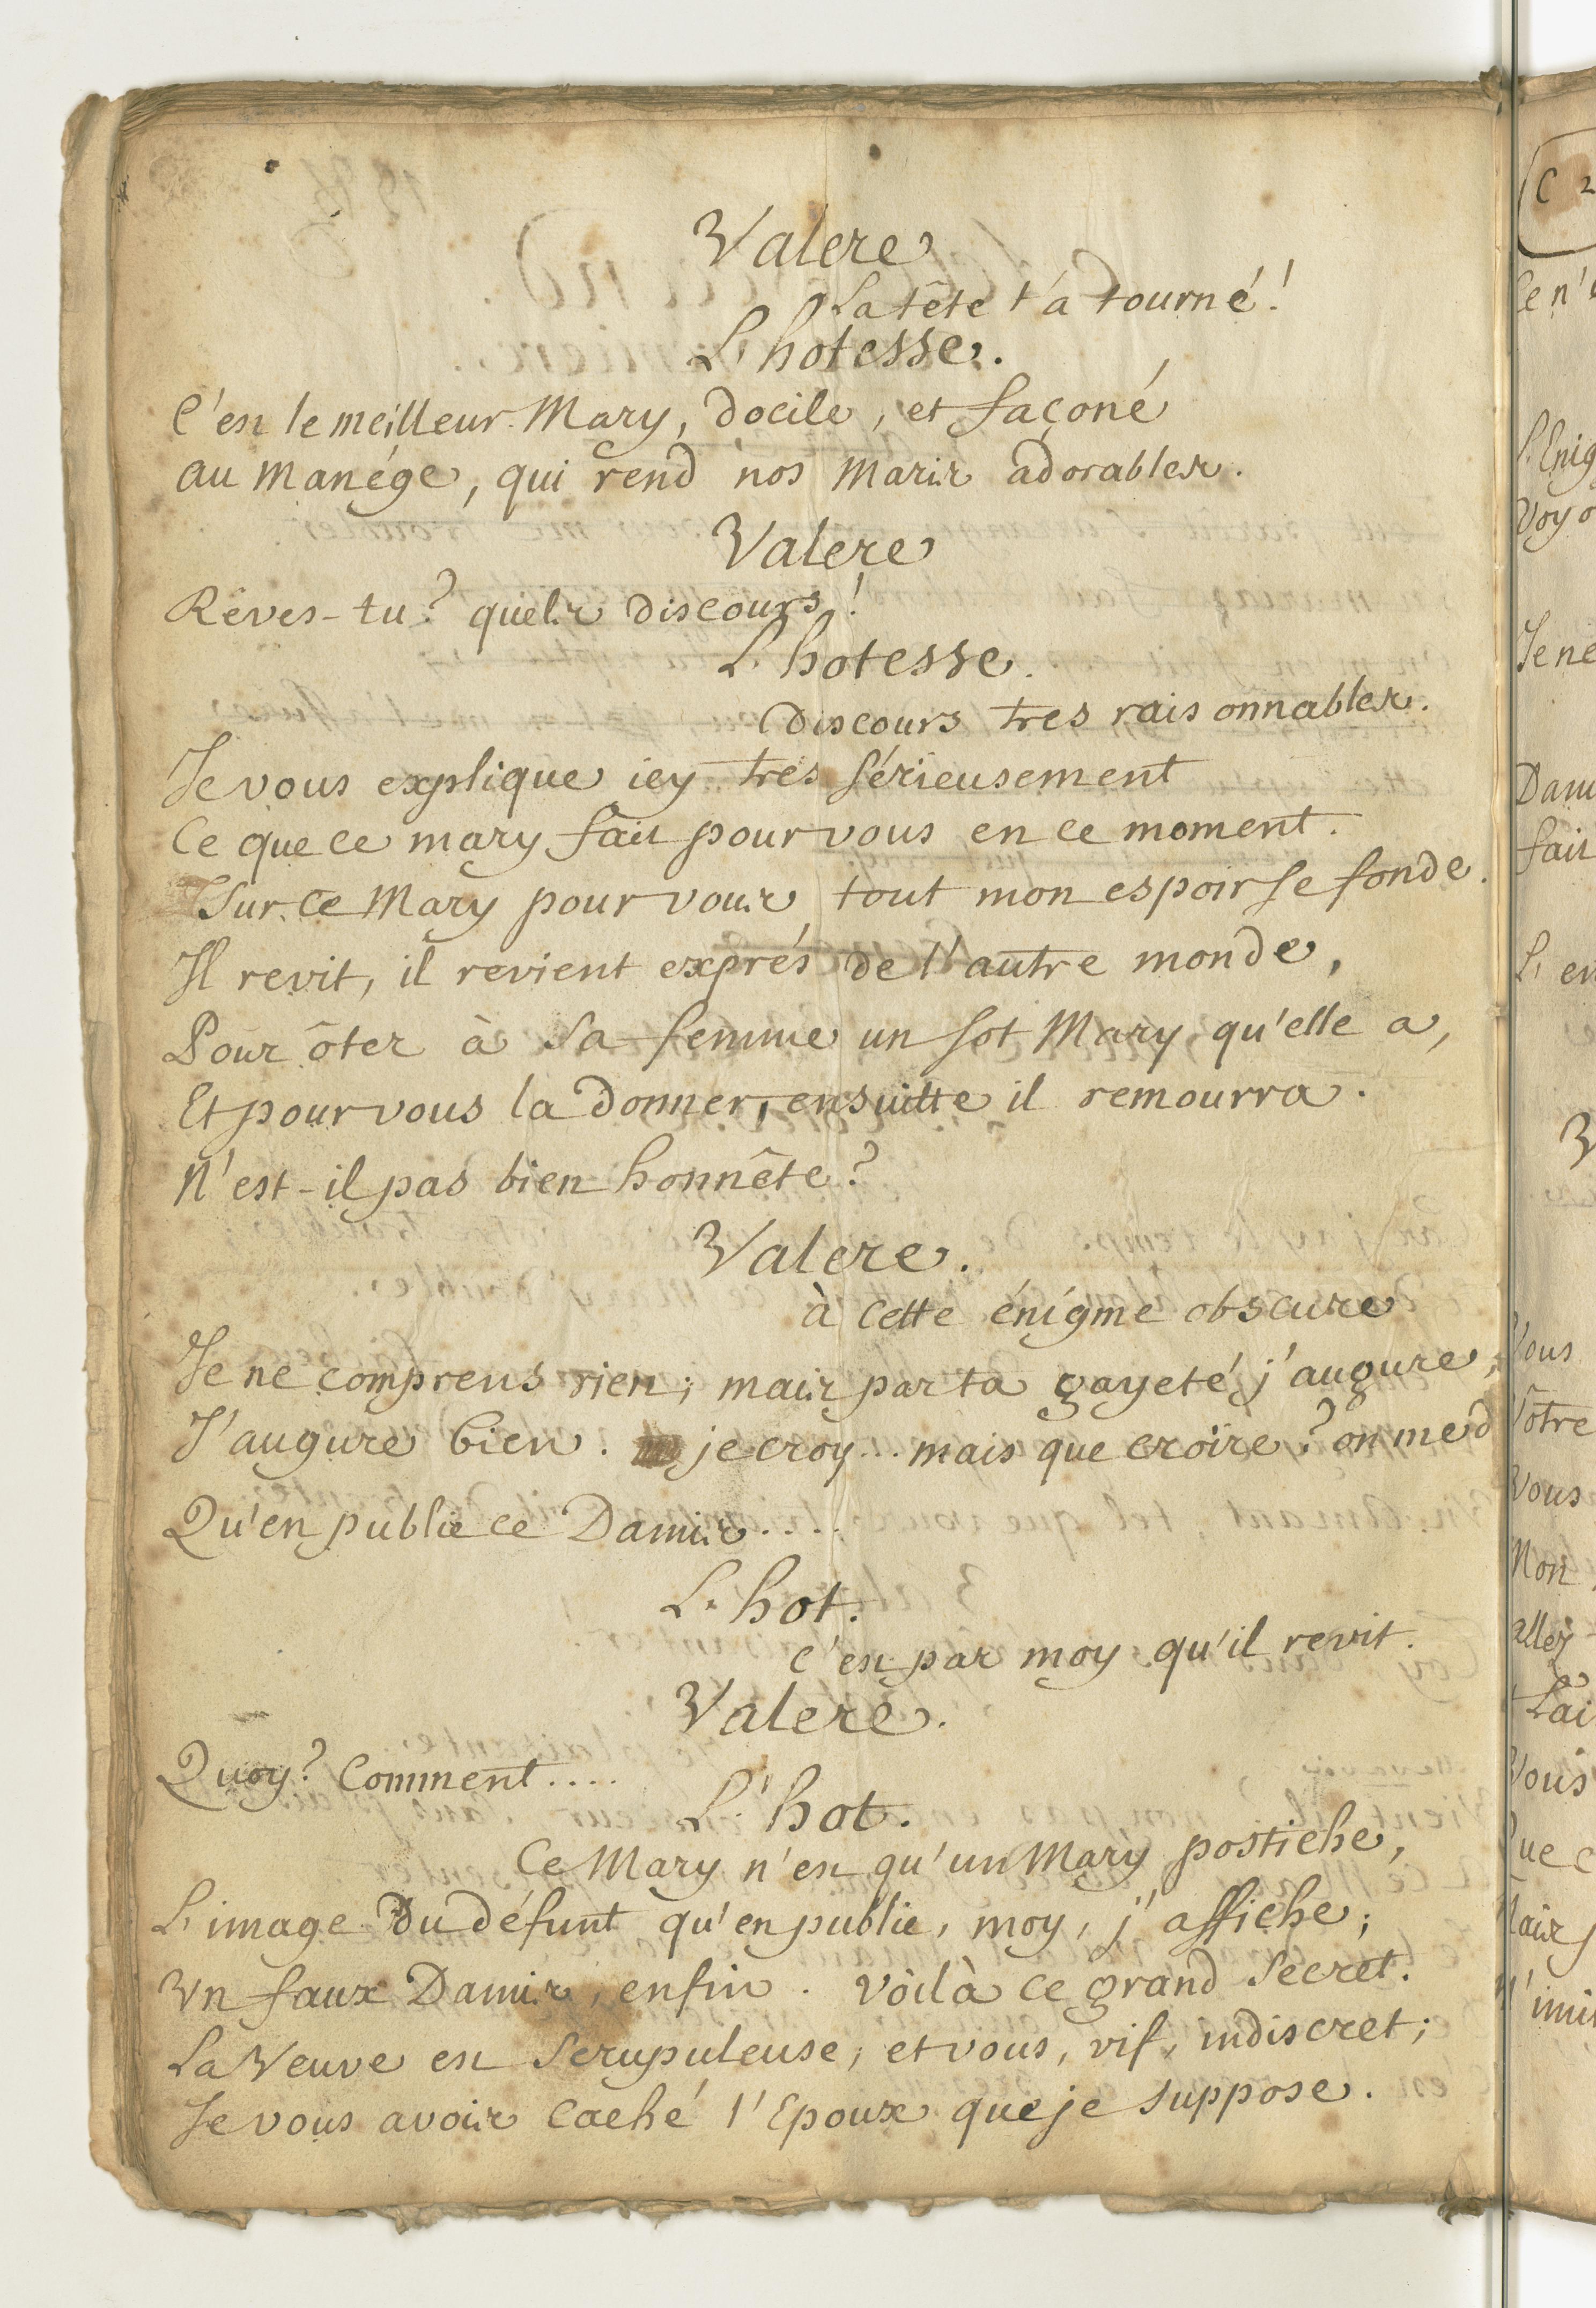 Valere
La tête t'a tourné!
L'hotesse.
C'est le meilleur Mary, docile, et façoné
au manége, qui rend nos Maris adorables.
Valere
Rêves-tu? quels discours!
L'hotesse.
Discours tres raisonnables.
Je vous explique icy tres sérieusement
Ce que ce mary fait pour vous en ce moment.
Sur ce Mary pour vous tout mon espoir se fonde.
Il revit, il revient exprés de l'autre monde,
Pour ôter à sa femme un sot Mary qu'elle a,
Et pour vous la donner, ensuitte il remourra.
N'est-il pas bien honnête?
Valere.
à cette énigme obscure
Je ne comprens rien; mais par ta gayeté j'augure,
J'augure bien. je croy... mais que croire? on me d
Qu'en public ce Damis....
L'hot.
C'est par moy qu'il revit.
Valere.
Quoy? Comment....
L'hot.
Ce Mary n'est qu'un Mary postiche,
L'image du défunt qu'en public, moy, j'affiche;
Un faux Damis, enfin. Voilà ce grand secret.
La Veuve est scrupuleuse, et vous, vif, indiscret;
Je vous avois caché l'Epoux que je suppose.
C 2
Ce n'
L'Enig
Voyo
Je ne
Dam
fait
L' en
V
Vous
Vôtre
Vous
Non
allez
Lai
Vous
Que c
Mais